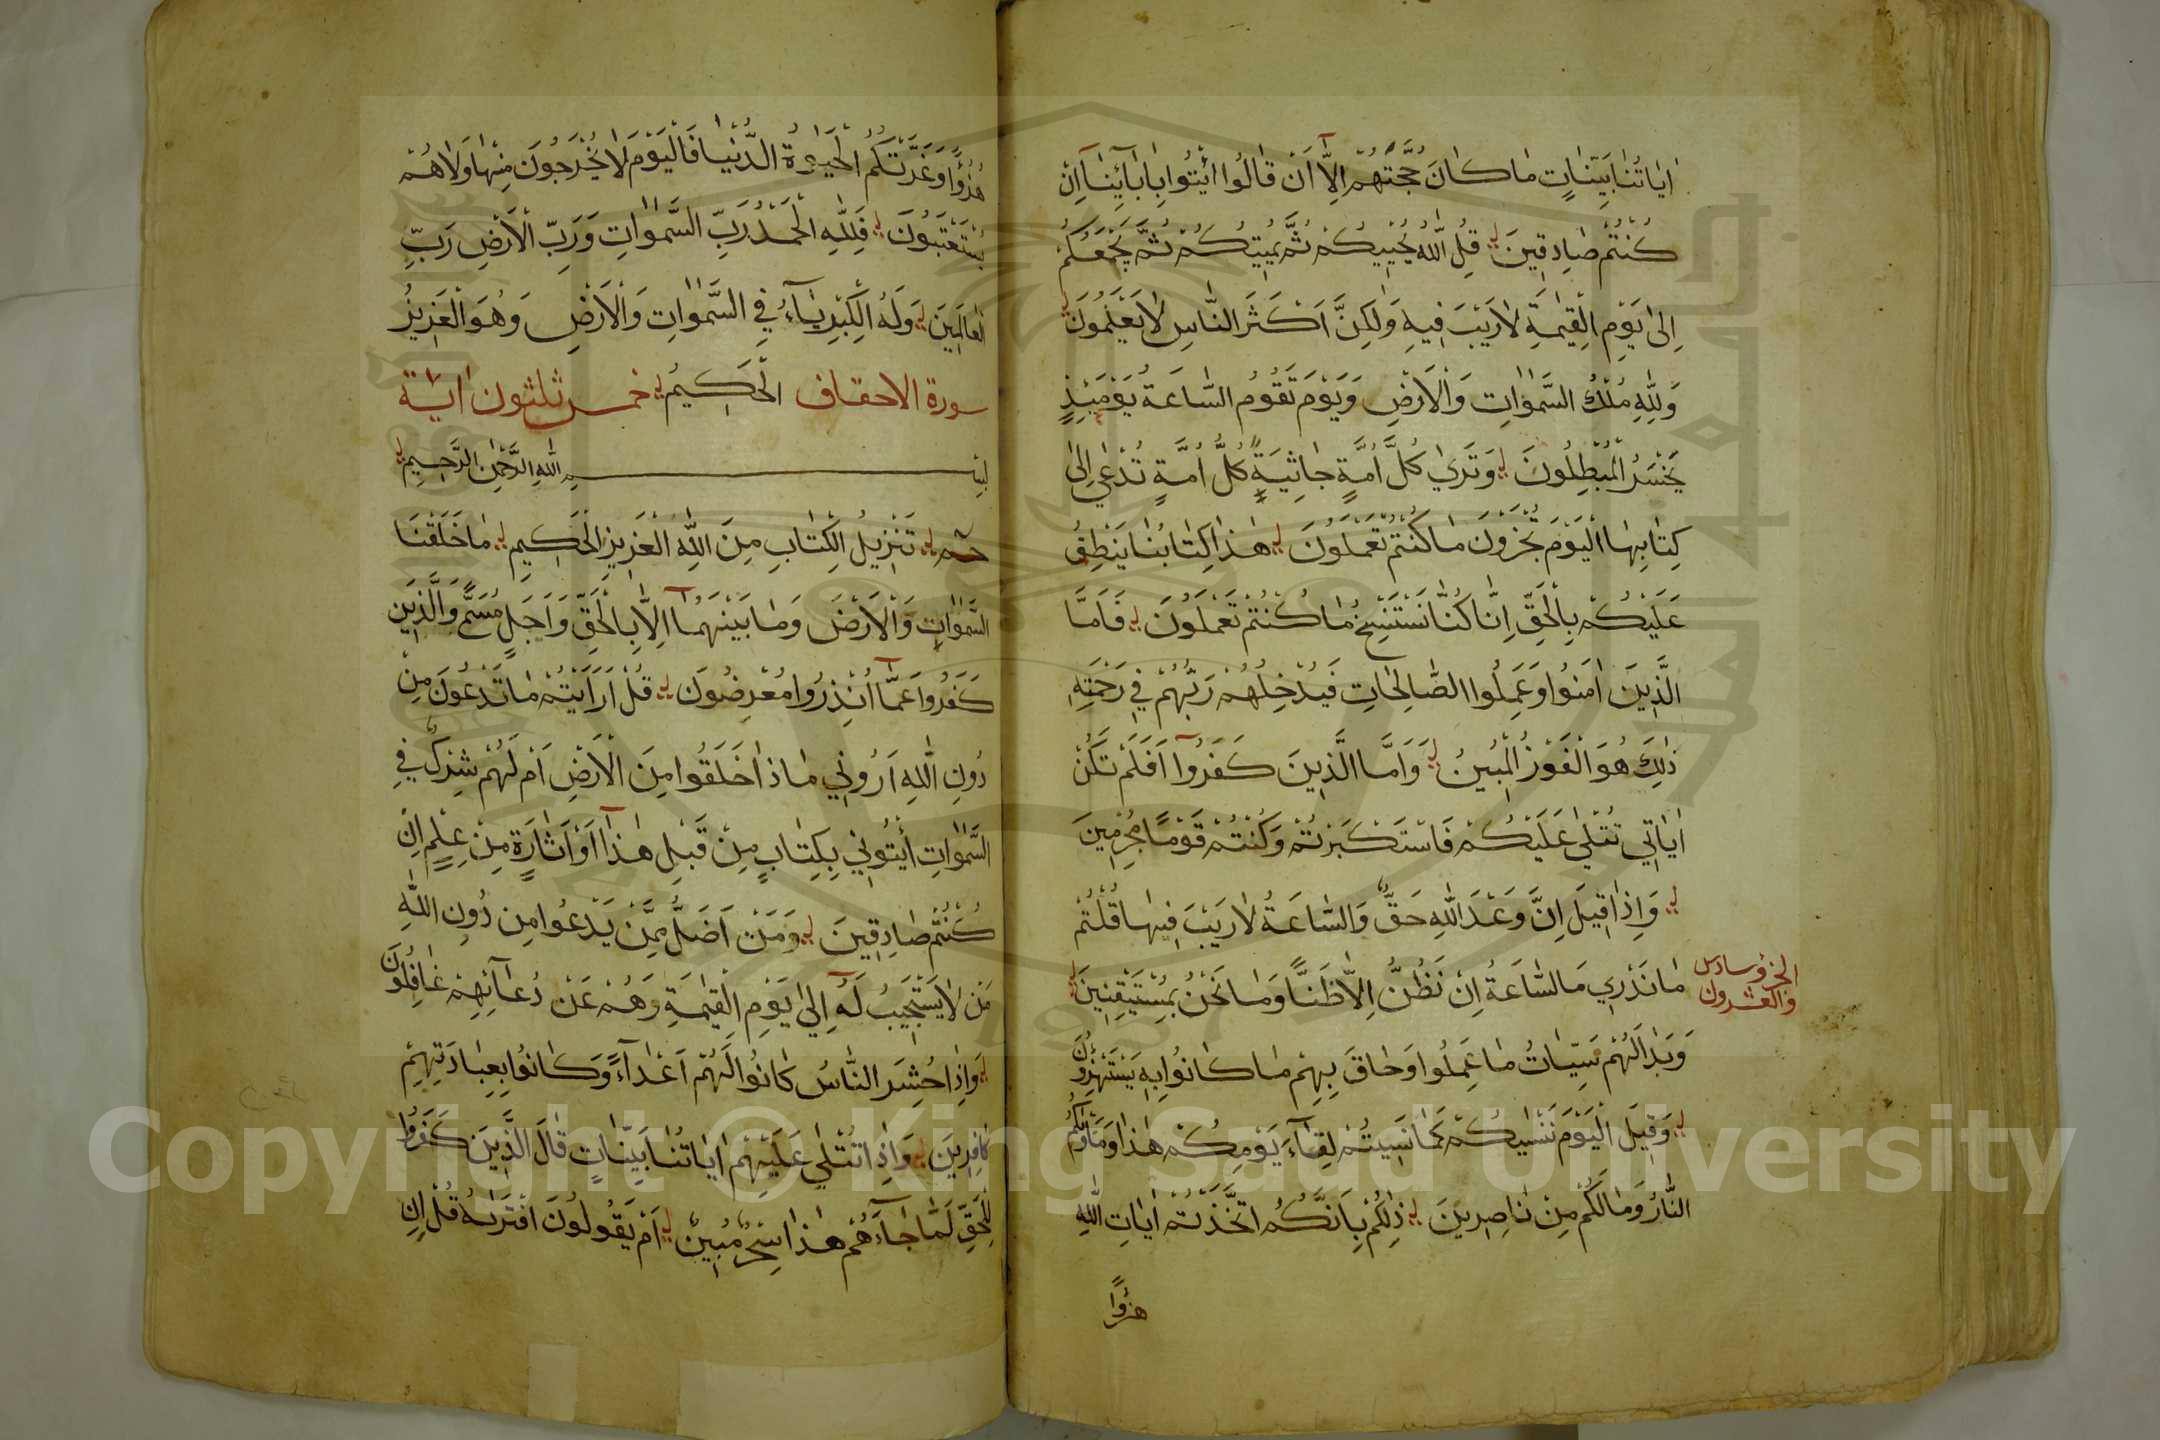 اٰيَاتُنَا بَيِّنَاتٍ مَا كَانَ حُجَّتَهُمْ اِلَّٓا اَنْ قَالُوا ائْتُوا بِاٰبَائِنَٓا اِنْ
كُنْتُمْ صَادِقِينَ قُلِ اللّٰهُ يُحْيِيكُمْ ثُمَّ يُمِيتُكُمْ ثُمَّ يَجْمَعُكُمْ
اِلٰى يَوْمِ الْقِيٰمَةِ لَا رَيْبَ فِيهِ وَلٰكِنَّ اَكْثَرَ النَّاسِ لَا يَعْلَمُونَ
وَلِلّٰهِ مُلْكُ السَّمٰوَاتِ وَالْاَرْضِ وَيَوْمَ تَقُومُ السَّاعَةُ يَوْمَئِذٍ
يَخْسَرُ الْمُبْطِلُونَ وَتَرٰى كُلَّ اُمَّةٍ جَاثِيَةً كُلُّ اُمَّةٍ تُدْعٰى اِلٰى
كِتَابِهَا اَلْيَوْمَ تُجْزَوْنَ مَا كُنْتُمْ تَعْمَلُونَ هٰذَا كِتَابُنَا يَنْطِقُ
عَلَيْكُمْ بِالْحَقِّ اِنَّا كُنَّا نَسْتَنْسِخُ مَا كُنْتُمْ تَعْمَلُونَ فَاَمَّا
الَّذِينَ اٰمَنُوا وَعَمِلُوا الصَّالِحَاتِ فَيُدْخِلُهُمْ رَبُّهُمْ فِي رَحْمَتِهِ
ذٰلِكَ هُوَ الْفَوْزُ الْمُبِينُ وَاَمَّا الَّذِينَ كَفَرُوٓا اَفَلَمْ تَكُنْ
اٰيَاتِي تُتْلٰى عَلَيْكُمْ فَاسْتَكْبَرْتُمْ وَكُنْتُمْ قَوْمًا مُجْرِمِينَ
وَاِذَا قِيلَ اِنَّ وَعْدَ اللّٰهِ حَقٌّ وَالسَّاعَةُ لَا رَيْبَ فِيهَا قُلْتُمْ
مَا نَدْرِي مَا السَّاعَةُ اِنْ نَظُنُّ اِلَّا ظَنًّا وَمَا نَحْنُ بِمُسْتَيْقِنِينَ
الجزؤ سادس
والعشرون
وَبَدَا لَهُمْ سَيِّئَاتُ مَا عَمِلُوا وَحَاقَ بِهِمْ مَا كَانُوا بِهِ يَسْتَهْزِؤُنَ
وَقِيلَ الْيَوْمَ نَنْسٰيكُمْ كَمَا نَسِيتُمْ لِقَٓاءَ يَوْمِكُمْ هٰذَا وَمَأْوٰيكُمُ
النَّارُ وَمَا لَكُمْ مِنْ نَاصِرِينَ ذٰلِكُمْ بِاَنَّكُمُ اتَّخَذْتُمْ اٰيَاتِ اللّٰهِ
هزؤًا
هُزُؤًا وَغَرَّتْكُمُ الْحَيٰوةُ الدُّنْيَا فَالْيَوْمَ لَا يُخْرَجُونَ مِنْهَا وَلَا هُمْ
يُسْتَعْتَبُونَ فَلِلّٰهِ الْحَمْدُ رَبِّ السَّمٰوَاتِ وَرَبِّ الْاَرْضِ رَبِّ
الْعَالَمِينَ وَلَهُ الْكِبْرِيَٓاءُ فِي السَّمٰوَاتِ وَالْاَرْضِ وَهُوَ الْعَزِيزُ
سورة الاحقاف الْحَكِيمُ خمس ثلثون اية
بِسْمِ اللّٰهِ الرَّحْمٰنِ الرَّحِيمِ
حٰمٓ تَنْزِيلُ الْكِتَابِ مِنَ اللّٰهِ الْعَزِيزِ الْحَكِيمِ مَا خَلَقْنَا
السَّمٰوَاتِ وَالْاَرْضَ وَمَا بَيْنَهُمَٓا اِلَّا بِالْحَقِّ وَاَجَلٍ مُسَمًّى وَالَّذِينَ
كَفَرُوا عَمَّٓا اُنْذِرُوا مُعْرِضُونَ قُلْ اَرَاَيْتُمْ مَا تَدْعُونَ مِنْ
دُونِ اللّٰهِ اَرُونِي مَاذَا خَلَقُوا مِنَ الْاَرْضِ اَمْ لَهُمْ شِرْكٌ فِي
السَّمٰوَاتِ اِيْتُونِي بِكِتَابٍ مِنْ قَبْلِ هٰذَٓا اَوْ اَثَارَةٍ مِنْ عِلْمٍ اِنْ
كُنْتُمْ صَادِقِينَ وَمَنْ اَضَلُّ مِمَّنْ يَدْعُوا مِنْ دُونِ اللّٰهِ
مَنْ لَا يَسْتَجِيبُ لَهُٓ اِلٰى يَوْمِ الْقِيٰمَةِ وَهُمْ عَنْ دُعَٓائِهِمْ غَافِلُونَ
وَاِذَا حُشِرَ النَّاسُ كَانُوا لَهُمْ اَعْدَٓاءً وَكَانُوا بِعِبَادَتِهِمْ
كَافِرِينَ وَاِذَا تُتْلٰى عَلَيْهِمْ اٰيَاتُنَا بَيِّنَاتٍ قَالَ الَّذِينَ كَفَرُوا
لِلْحَقِّ لَمَّا جَٓاءَهُمْ هٰذَا سِحْرٌ مُبِينٌ اَمْ يَقُولُونَ افْتَرٰيهُ قُلْ اِنِ
Copyright © King Saud University